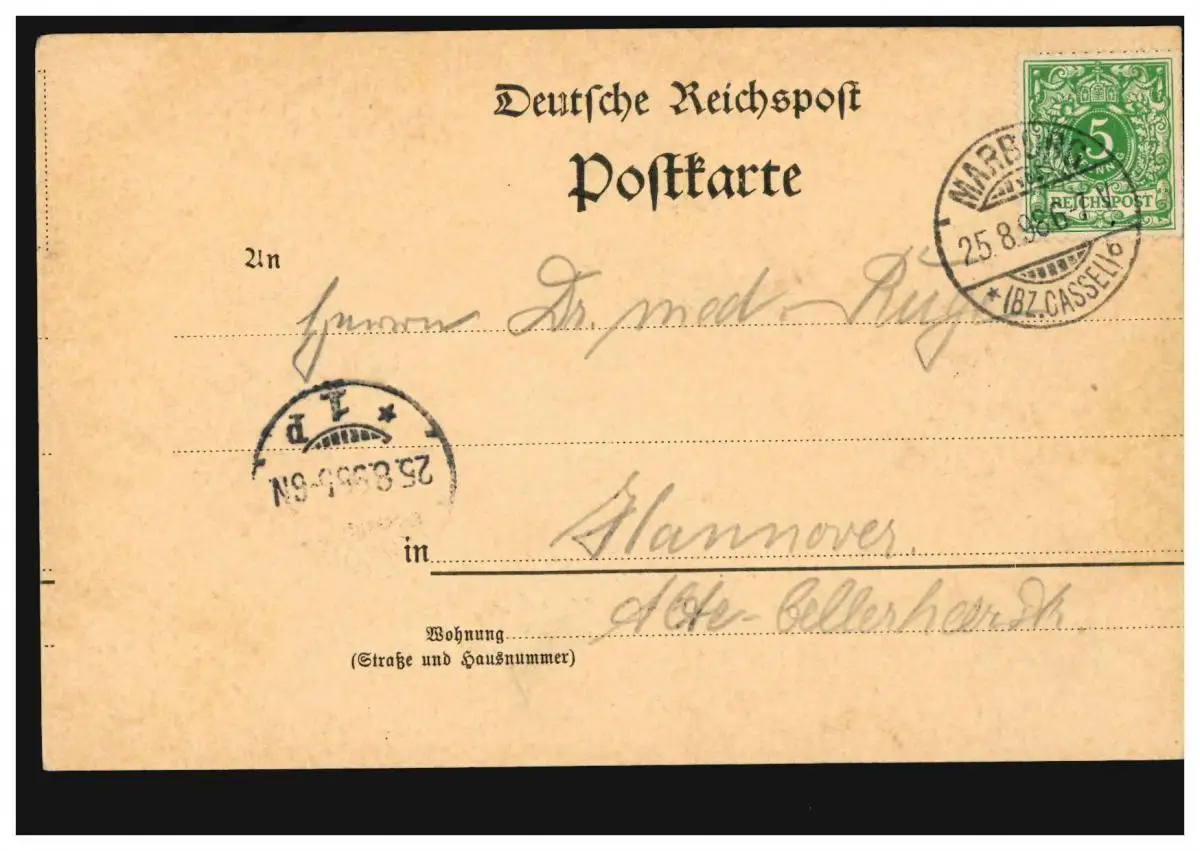 Deutsche Reichspost
Postkarte
5
REICHSPOST
MARBURG
25.8.98 6-7 N.
* (BZ. CASSEL) b
An
Herrn Dr. med. Ruge
* 1 P
25.8.98 5-6N
in Hannover.
Alte-Cellerheerstr.
Wohnung
(Straße und Hausnummer)